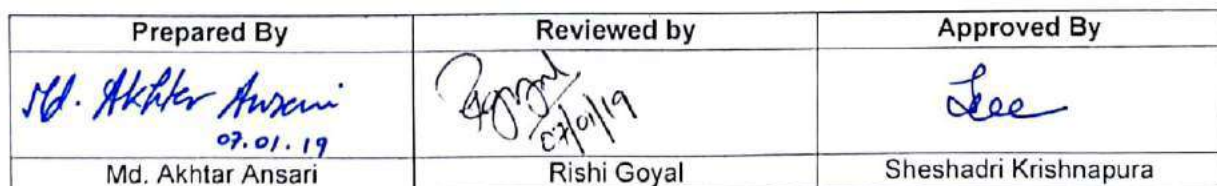 Prepared By Reviewed by Approved By
Md. Akhter Ansari
07.01.19
07/01/19
Md. Akhtar Ansari Rishi Goyal Sheshadri Krishnapura